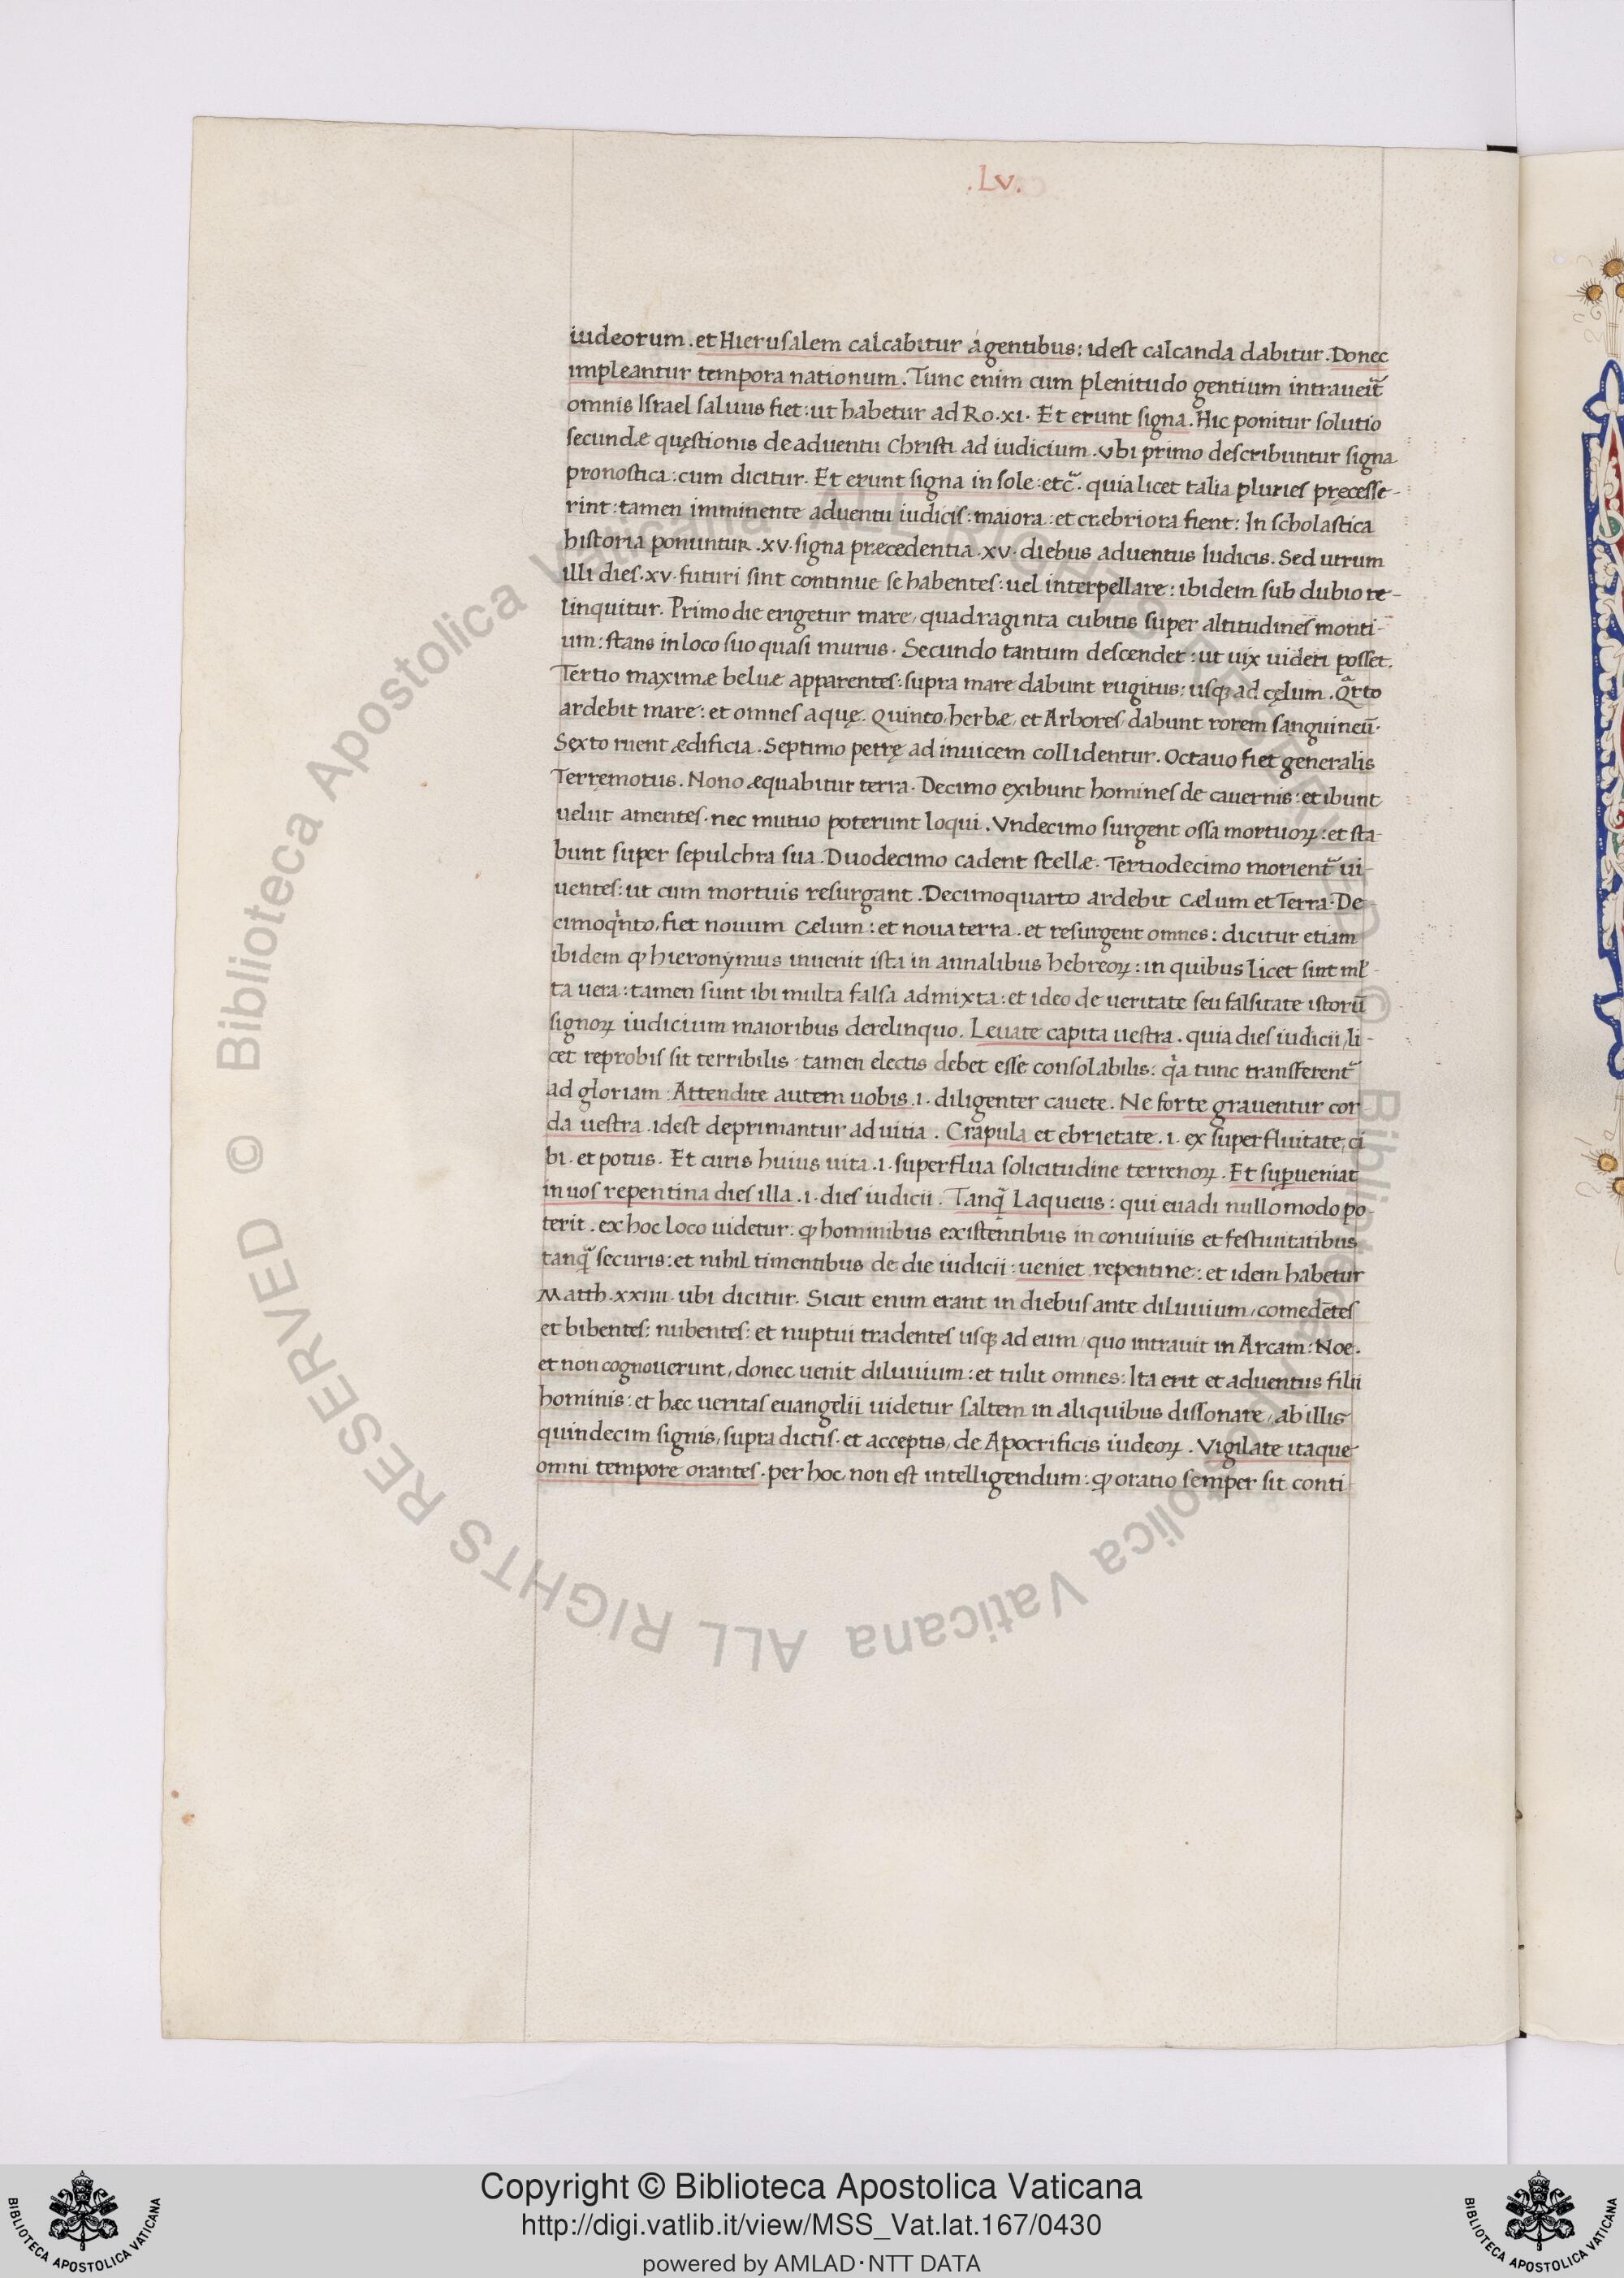 .Lv.
iudeorum. et Hierusalem calcabitur ágentibus: idest calcanda dabitur. Donec
impleantur tempora nationum. Tunc enim cum plenitudo gentium intraueit᷑
omnis Israel saluus fiet: ut habetur ad Ro. xi. Et erunt signa. Hic ponitur solutio
secundæ quęstionis de aduentu Christi ad iudicium. Vbi primo describuntur signa
pronostica: cum dicitur. Et erunt signa in sole: etc᷑. quia licet talia pluries pręcesse-
rint: tamen imminente aduentu iudicis: maiora: et crebriora fient: In scholastica
historia ponuntur .xv. signa precedentia .xv. diebus aduentus Iudicis. Sed utrum
illi dies .xv. futuri sint continue se habentes: uel interpellare: ibidem sub dubio re-
linquitur. Primo die erigetur mare, quadraginta cubitis super altitudines monti-
um: stans in loco suo quasi murus. Secundo tantum descendet: ut uix uideri posset.
Tertio maximæ beluæ apparentes: supra mare dabunt rugitus: usqꝫ ad cęlum. Qᷓrto
ardebit mare: et omnes aquę. Quinto, herbæ, et Arbores, dabunt rorem sanguineū.
Sexto ruent ædificia. Septimo petrę ad inuicem collidentur. Octauo fiet generalis
Terręmotus. Nono æquabitur terra. Decimo exibunt homines de cauernis: et ibunt
uelut amentes. nec mutuo poterunt loqui. Vndecimo surgent ossa mortuoꝝ: et sta-
bunt super sepulchra sua. Duodecimo cadent stellæ. Tertiodecimo morient᷑ ui-
uentes: ut cum mortuis resurgant. Decimoquarto ardebit Cælum et Terra. De-
cimoqͥnto, fiet nouum Cælum: et noua terra. et resurgent omnes: dicitur etiam
ibidem ꝙ hieronymus inuenit ista in annalibus hebreoꝝ: in quibus licet sint ml̕-
ta uera: tamen sunt ibi multa falsa admixta: et ideo de ueritate seu falsitate istorū
signoꝝ iudicium maioribus derelinquo. Leuate capita uestra. quia dies iudicii, li-
cet reprobis sit terribilis. tamen electis debet esse consolabilis: qͥa tunc transferent᷑
ad gloriam: Attendite autem uobis .i. diligenter cauete. Ne forte grauentur cor-
da uestra. idest deprimantur ad uitia. Crapula et ebrietate .i. ex superfluitate, ci
bi. et potus. Et curis huius uita .i. superflua solicitudine terrenoꝝ. Et suꝑueniat
in uos repentina dies illa .i. dies iudicii. Tanqᷓ Laqueus: qui euadi nullo modo po-
terit. ex hoc loco uidetur: ꝙ hominibus existentibus in conuiuiis et festiuitatibus
tanqᷓ securis: et nihil timentibus de die iudicii: ueniet repentine: et idem habetur
Matth. xxiiii. ubi dicitur. Sicut enim erant in diebus ante diluuium, comedētes
et bibentes: nubentes: et nuptui tradentes usqꝫ ad eum, quo intrauit in Arcam: Noe.
et non cognouerunt, donec uenit diluuium: et tulit omnes: Ita erit et aduentus filii
hominis: et hæc ueritas euangelii uidetur saltem in aliquibus dissonare, ab illis
quindecim signis, supra dictis. et acceptis, de Apocrificis iudeoꝝ. Vigilate itaque
omni tempore orantes. per hoc, non est intelligendum: ꝙ oratio semper sit conti
© Biblioteca Apostolica Vaticana ALL RIGHTS RESERVED
© Biblioteca Apostolica Vaticana ALL RIGHTS RESERVED
BIBLIOTECA APOSTOLICA VATICANA
Copyright © Biblioteca Apostolica Vaticana
http://digi.vatlib.it/view/MSS_Vat.lat.167/0430
powered by AMLAD·NTT DATA
BIBLIOTECA APOSTOLICA VATICANA